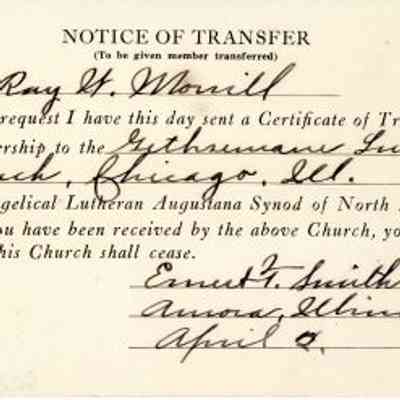 NOTICE OF TRANSFER
(To be given member transferred)
Ray H. Morrill
request I have this day sent a Certificate of Tr
ership to the Gethsemane Lu
Chicago, Ill.
ngelical Lutheran Augustana Synod of North
ou have been received by the above Church, yo
his Church shall cease.
Ernest F. Smith
Aurora, Illin
April